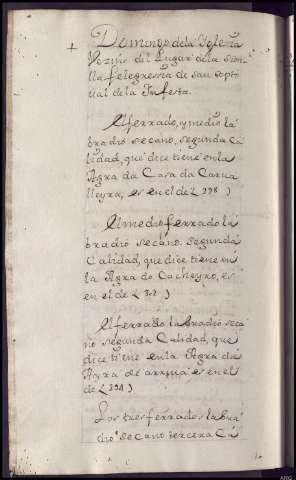 + Domingo de la Yglesia
Vezino del Lugar de la
felegressia de san
de la Infesta.
El ferrado, y medio la
bradio secano, segunda Ca
lidad, que dice tiene en la
Agra da Casa da
es en el de L 298 )
El medio ferrado la
bradio secano segunda
Calidad, que dice tiene en
la Agra do Cacheyro, es
en el de L 312 )
El ferrado labradio seca
no segunda Calidad, que
dice tiene en la Agra da
de arriva es en el
de L 394 )
Los tres ferrados labra
dio secano tercera Ca